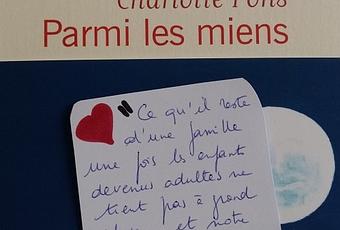 Charlotte Pons
Parmi les miens
" Ce qu'il reste
d'une famille
une fois les enfants
devenus adultes ne
tient pas à grand
et notre